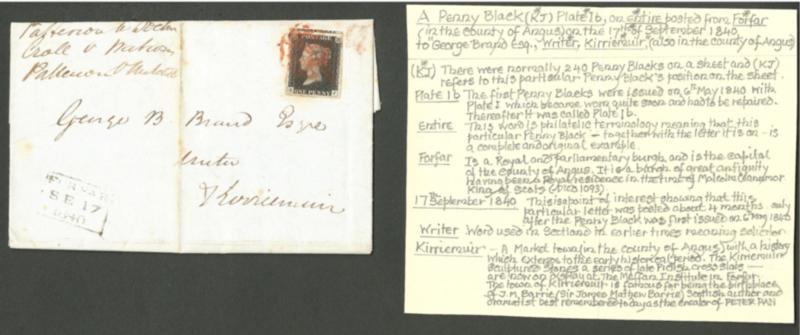 George B Brand Esqre
Writer
Kirriemuir
SE 17
1840
POSTAGE
ONE PENNY
A Penny Black (KJ) Plate 1b, on entire posted from Forfar
(in the county of Angus) on the 17th of September 1840
to George Brand Esq., Writer, Kirriemuir (also in the county of Angus)
(KJ) There were normally 240 Penny Blacks on a sheet and (KJ)
refers to this particular Penny Black's position on the sheet.
Plate 1b The first Penny Blacks were issued on 6th May 1840 with
Plate 1 which became worn quite soon and had to be repaired.
Thereafter it was called Plate 1b.
Entire This word is philatelic terminology meaning that this
particular Penny Black – together with the letter it is on – is
a complete and original example.
Forfar Is a Royal and parliamentary burgh and is the capital
of the county of Angus. It is a burgh of great antiquity
having been a Royal residence in the time of Malcolm Ceanmor
King of Scots (died 1093).
17th September 1840 This is a point of interest showing that this
particular letter was posted about 4 months only
after the Penny Black was first issued on 6 May 1840
Writer Word used in Scotland in earlier times meaning solicitor
Kirriemuir – A Market town (in the county of Angus) with a history
which extends to the early historical period. The Kirriemuir
Sculptured Stones a series of late Pictish cross slabs –
are now on display at The Meffan Institute in Forfar.
The town of Kirriemuir is famous for being the birthplace
of J.M. Barrie (Sir James Mathew Barrie) Scottish author and
dramatist best remembered today as the creator of PETER PAN